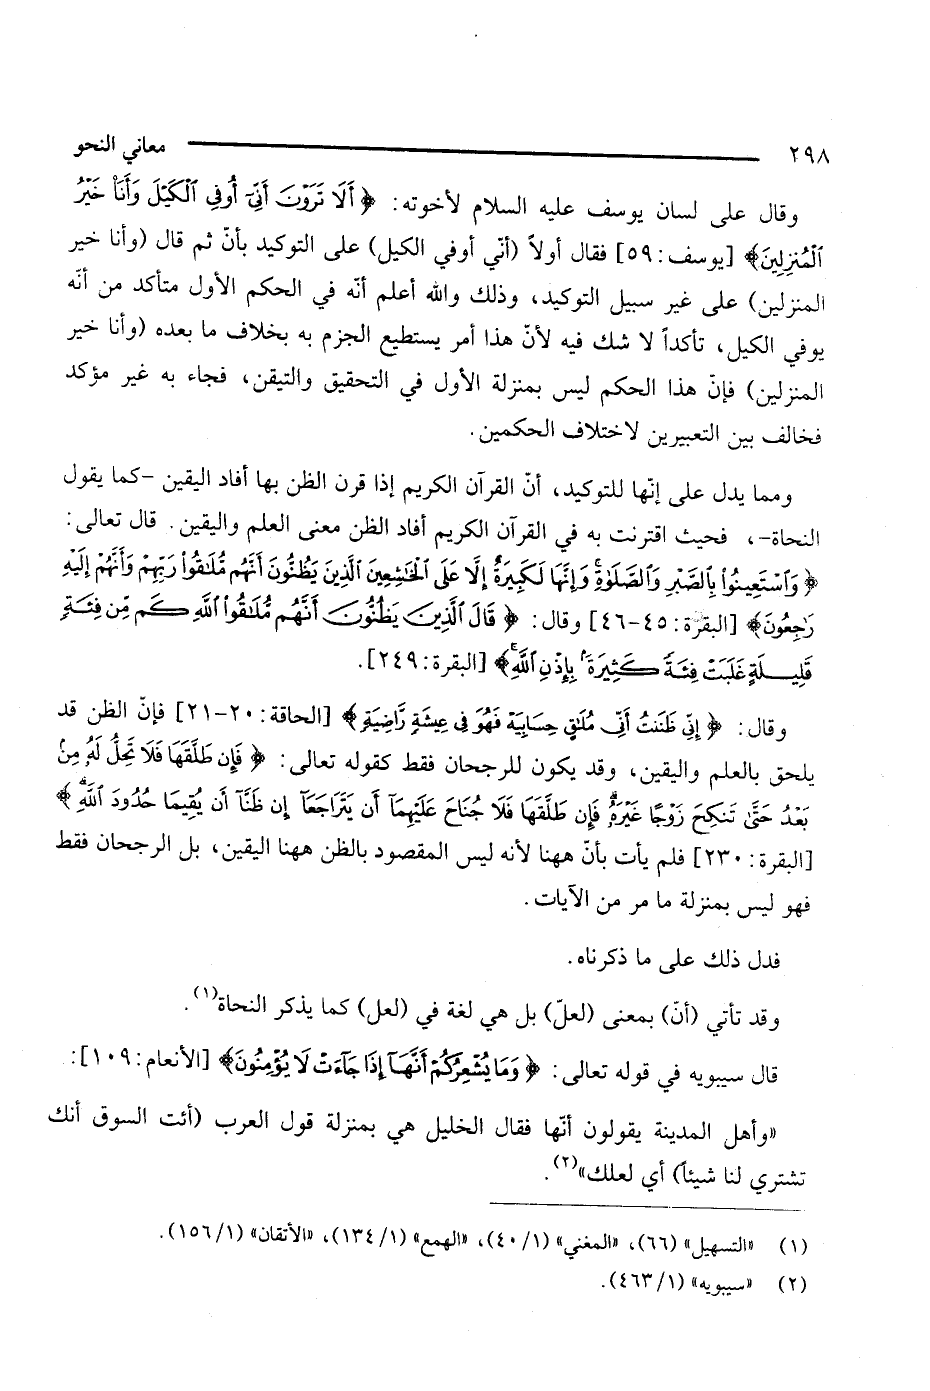 ٢٩٨ معاني النحو
وقال على لسان يوسف عليه السلام لأخوته: ﴿أَلَا تَرَوْنَ أَنِّي أُوفِي الْكَيْلَ وَأَنَا خَيْرُ
الْمُنزِلِينَ﴾ [يوسف: ٥٩] فقال أولاً (أنّي أوفي الكيل) على التوكيد بأنّ ثم قال (وأنا خير
المنزلين) على غير سبيل التوكيد، وذلك والله أعلم أنّه في الحكم الأول متأكد من أنّه
يوفي الكيل، تأكداً لا شك فيه لأنّ هذا أمر يستطيع الجزم به بخلاف ما بعده (وأنا خير
المنزلين) فإنّ هذا الحكم ليس بمنزلة الأول في التحقيق والتيقن، فجاء به غير مؤكد
فخالف بين التعبيرين لاختلاف الحكمين.
ومما يدل على إنّها للتوكيد، أنّ القرآن الكريم إذا قرن الظن بها أفاد اليقين -كما يقول
النحاة-، فحيث اقترنت به في القرآن الكريم أفاد الظن معنى العلم واليقين. قال تعالى:
﴿وَاسْتَعِينُوا بِالصَّبْرِ وَالصَّلَوٰةِ وَإِنَّهَا لَكَبِيرَةٌ إِلَّا عَلَى الْخَـٰشِعِينَ الَّذِينَ يَظُنُّونَ أَنَّهُم مُّلَـٰقُوا رَبِّهِمْ وَأَنَّهُمْ إِلَيْهِ
رَٰجِعُونَ﴾ [البقرة: ٤٥-٤٦] وقال: ﴿قَالَ الَّذِينَ يَظُنُّونَ أَنَّهُم مُّلَـٰقُوا اللَّهِ كَم مِّن فِئَةٍ
قَلِيلَةٍ غَلَبَتْ فِئَةً كَثِيرَةً بِإِذْنِ اللَّهِ﴾ [البقرة: ٢٤٩].
وقال: ﴿إِنِّي ظَنَنتُ أَنِّي مُلَـٰقٍ حِسَابِيَهْ فَهُوَ فِي عِيشَةٍ رَّاضِيَةٍ﴾ [الحاقة: ٢٠-٢١] فإنّ الظن قد
يلحق بالعلم واليقين، وقد يكون للرجحان فقط كقوله تعالى: ﴿فَإِن طَلَّقَهَا فَلَا تَحِلُّ لَهُ مِنْ
بَعْدُ حَتَّىٰ تَنكِحَ زَوْجًا غَيْرَهُ فَإِن طَلَّقَهَا فَلَا جُنَاحَ عَلَيْهِمَا أَن يَتَرَاجَعَا إِن ظَنَّا أَن يُقِيمَا حُدُودَ اللَّهِ﴾
[البقرة: ٢٣٠] فلم يأت بأنّ ههنا لأنه ليس المقصود بالظن ههنا اليقين، بل الرجحان فقط
فهو ليس بمنزلة ما مر من الآيات.
فدل ذلك على ما ذكرناه.
وقد تأتي (أنّ) بمعنى (لعلّ) بل هي لغة في (لعل) كما يذكر النحاة(١).
قال سيبويه في قوله تعالى: ﴿وَمَا يُشْعِرُكُمْ أَنَّهَا إِذَا جَاءَتْ لَا يُؤْمِنُونَ﴾ [الأنعام: ١٠٩]:
«وأهل المدينة يقولون أنّها فقال الخليل هي بمنزلة قول العرب (أئت السوق أنك
تشتري لنا شيئاً) أي لعلك»(٢).
(١) «التسهيل» (٦٦)، «المغني» (٤٠/١)، «الهمع» (١٣٤/١)، «الأتقان» (١٥٦/١).
(٢) «سيبويه» (٤٦٣/١).